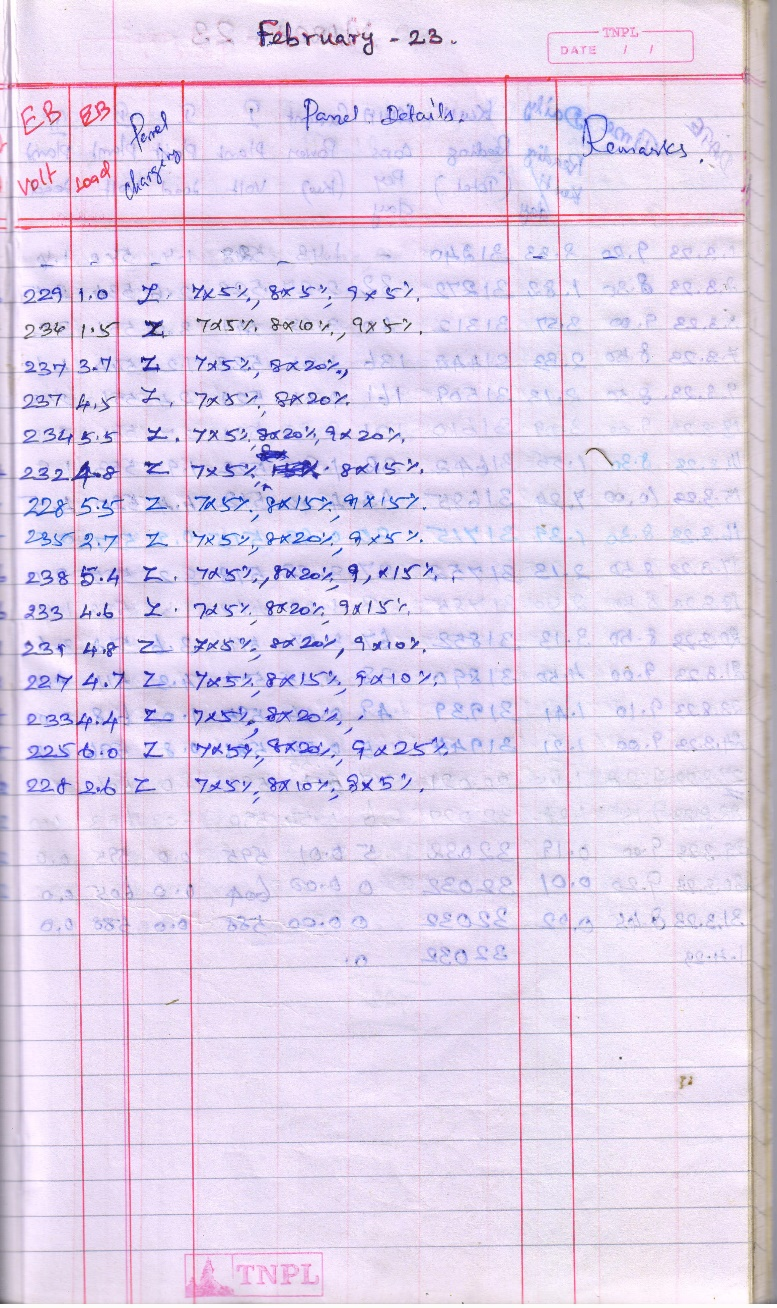 February - 23.
TNPL
DATE / /
EB volt EB Load Panel charging Panel Details. Remarks.
- - - -
229 1.0 Z. 7x5%, 8x5%, 9x5%.
234 1.5 Z 7x5%, 8x10%, 9x5%.
237 3.7 Z 7x5%, 8x20%,
237 4.5 Z. 7x5%, 8x20%.
234 5.5 Z. 7x5%, 8x20%, 9x20%.
232 4.8 Z 7x5%, 8x15%.
228 5.5 Z. 7x5%, 8x15%, 9x15%.
235 2.7 Z 7x5%, 8x20%, 9x5%.
238 5.4 Z. 7x5%, 8x20%, 9,x15%,
233 4.6 Z. 7x5%, 8x20%, 9x15%.
4.8 Z 7x5%, 8x20%, 9x10%.
227 4.7 Z. 7x5%, 8x15%, 9x10%.
233 4.4 Z 7x5%, 8x20%,
225 6.0 Z 7x5%, 8x20%, 9x25%.
228 2.6 Z 7x5%, 8x10%, 8x5%.
TNPL